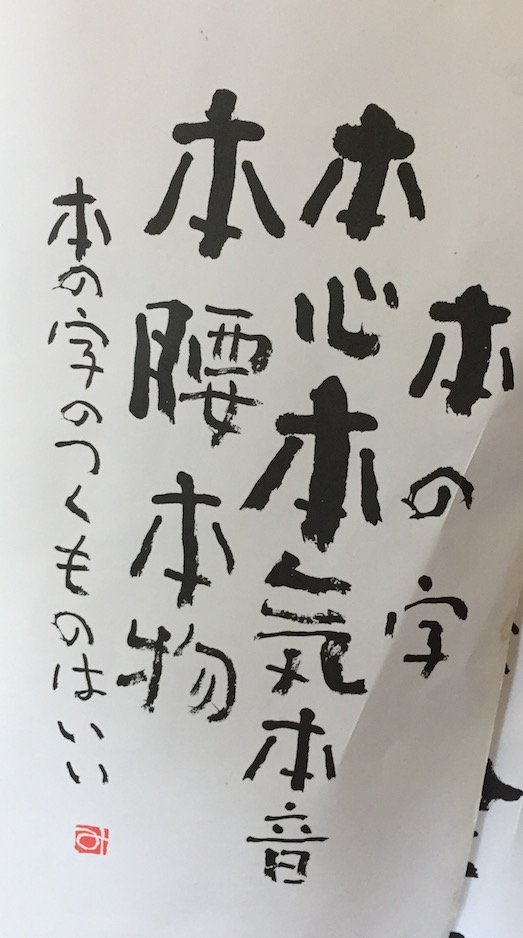 本の字
本心本気本音
本腰本物
本の字のつくものはいい
み